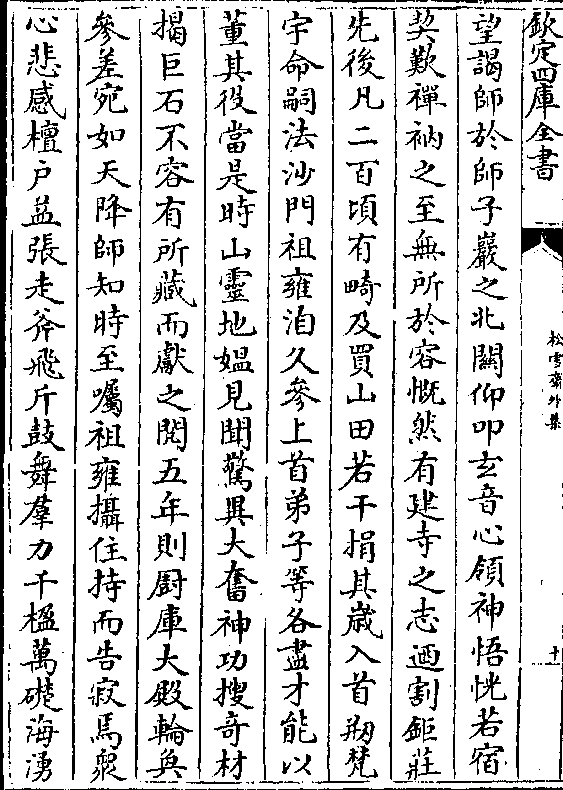 欽定四庫全書
松雪齋外集
十
望謁師於師子巖之北關仰叩玄音心領神悟恍若宿
契歎禪衲之至無所於容慨然有建寺之志迺割鉅莊
先後凡二百頃有畸及買山田若干捐其歲入首剏梵
宇命嗣法沙門祖雍洎久參上首弟子等各盡才能以
董其役當是時山靈地媪見聞驚異大奮神功搜奇材
揭巨石不容有所藏而獻之閱五年則厨庫大殿輪奐
參差宛如天降師知時至囑祖雍攝住持而告寂焉衆
心悲感檀户益張走斧飛斤鼓舞羣力千楹萬礎海湧